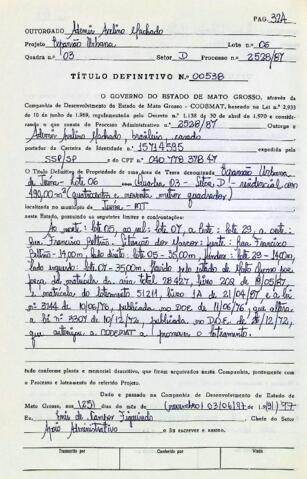 PAG. 324
OUTORGADO Ademir Avelino Machado
Projeto Expansão Urbana Lote n.º 06
Quadra n.º 03 Setor D Processo n.º 2528/87
TÍTULO DEFINITIVO N.º 00538
O GOVERNO DO ESTADO DE MATO GROSSO, através da
Companhia de Desenvolvimento do Estado de Mato Grosso - CODEMAT, baseado na Lei n.º 2.933
de 10 de junho de 1969, regulamentada pelo Decreto n.º 1.138 de 30 de abril de 1970 e considerando
o que consta do Processo Administrativo n.º 2528/87 Outorga a
Ademir Avelino Machado, brasileiro, casado
portador da Carteira de Identidade n.º 15714595 expedida pela
SSP/SP e do CPF n.º 040 778 378 47
O Título Definitivo de Propriedade de uma área de Terra denominada Expansão Urbana
de Juína - Lote 06 Quadra 03 - Setor D - residencial com
490,00 m² (quatrocentos e noventa metros quadrados)
localizada no município de Juína - MT
neste Estado, possuindo os seguintes limites e confrontações:
Ao norte: lote 05, ao sul: lote 07, a leste: lote 29, a oeste:
Rua Francisco Frente: Rua Francisco
14,00m, lado direito: lote 05 - 35,00m, fundos: lote 29 - 14,00m
lado esquerdo: lote 07 - 35,00m. Havido pelo estado de Mato Grosso por
força da matrícula da área total 28.427, livro 2CQ de 19/05/87
e matrícula do loteamento 51211, livro 1A de 21/04/87 e a lei
nº 3744 de 10/06/76, publicada no D.O.E. de 11/06/76, que altera
a lei nº 3307 de 10/12/72, publicada no D.O.E. de 20/12/72,
que autoriza a CODEMAT a promover o loteamento.
tudo conforme planta e memorial descritivo, que foram arquivados nesta Companhia, juntamente com
o Processo e loteamento do referido Projeto.
Dado e passado na Companhia de Desenvolvimento do Estado de
Mato Grosso, aos dias do mês de
Eu, dos Santos Figueiredo Chefe do Setor
Apoio Administrativo o fiz escrever e assino.
Transcrito por Conferido por Visto